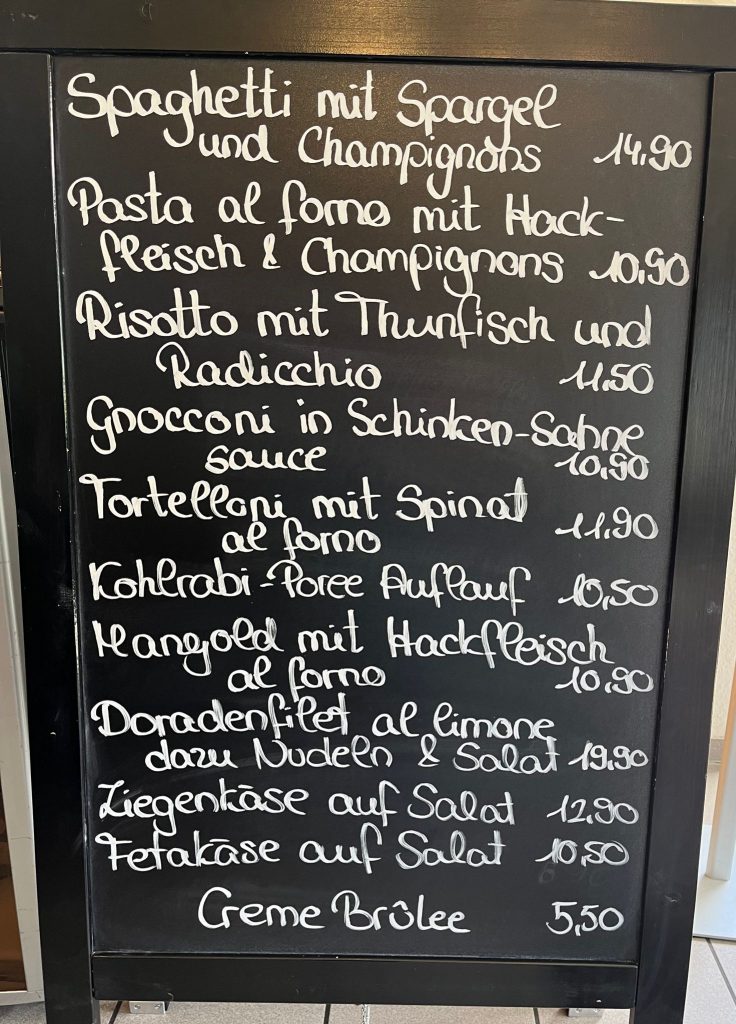 Spaghetti mit Spargel
und Champignons 14.90
Pasta al forno mit Hack-
fleisch & Champignons 10,90
Risotto mit Thunfisch und
Radicchio 11.50
Gnocconi in Schinken-Sahne
sauce 10,90
Tortelloni mit Spinat
al forno 11.90
Kohlrabi-Poree Auflauf 10,50
Mangold mit Hackfleisch
al forno 10,90
Doradenfilet al limone
dazu Nudeln & Salat 19,90
Ziegenkäse auf Salat 12,90
Fetakäse auf Salat 10,50
Creme Brûlee 5,50